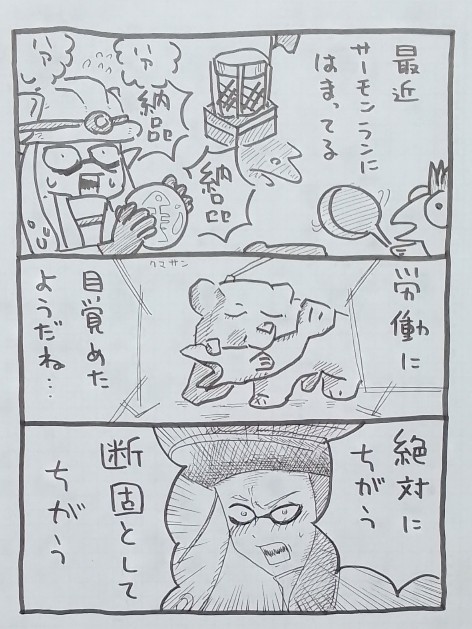 最近
サーモンランに
はまってる
納品
納品
クマサン
労働に
目覚めた
ようだね…
絶対に
ちがう
断固として
ちがう